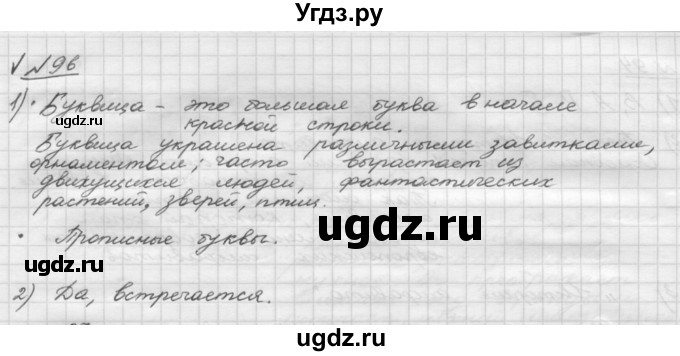 Угдз.ру
√ №96
1) • Буквица - это большая буква в начале
красной строки.
Буквица украшена различными завитками,
орнаментом; часто вырастает из
движущихся людей, фантастических
растений, зверей, птиц.
• Прописные буквы.
2) Да, встречается.
ugdz.ru
ugdz.ru
ugdz.ru
ugdz.ru
ugdz.ru
ugdz.ru
ugdz.ru